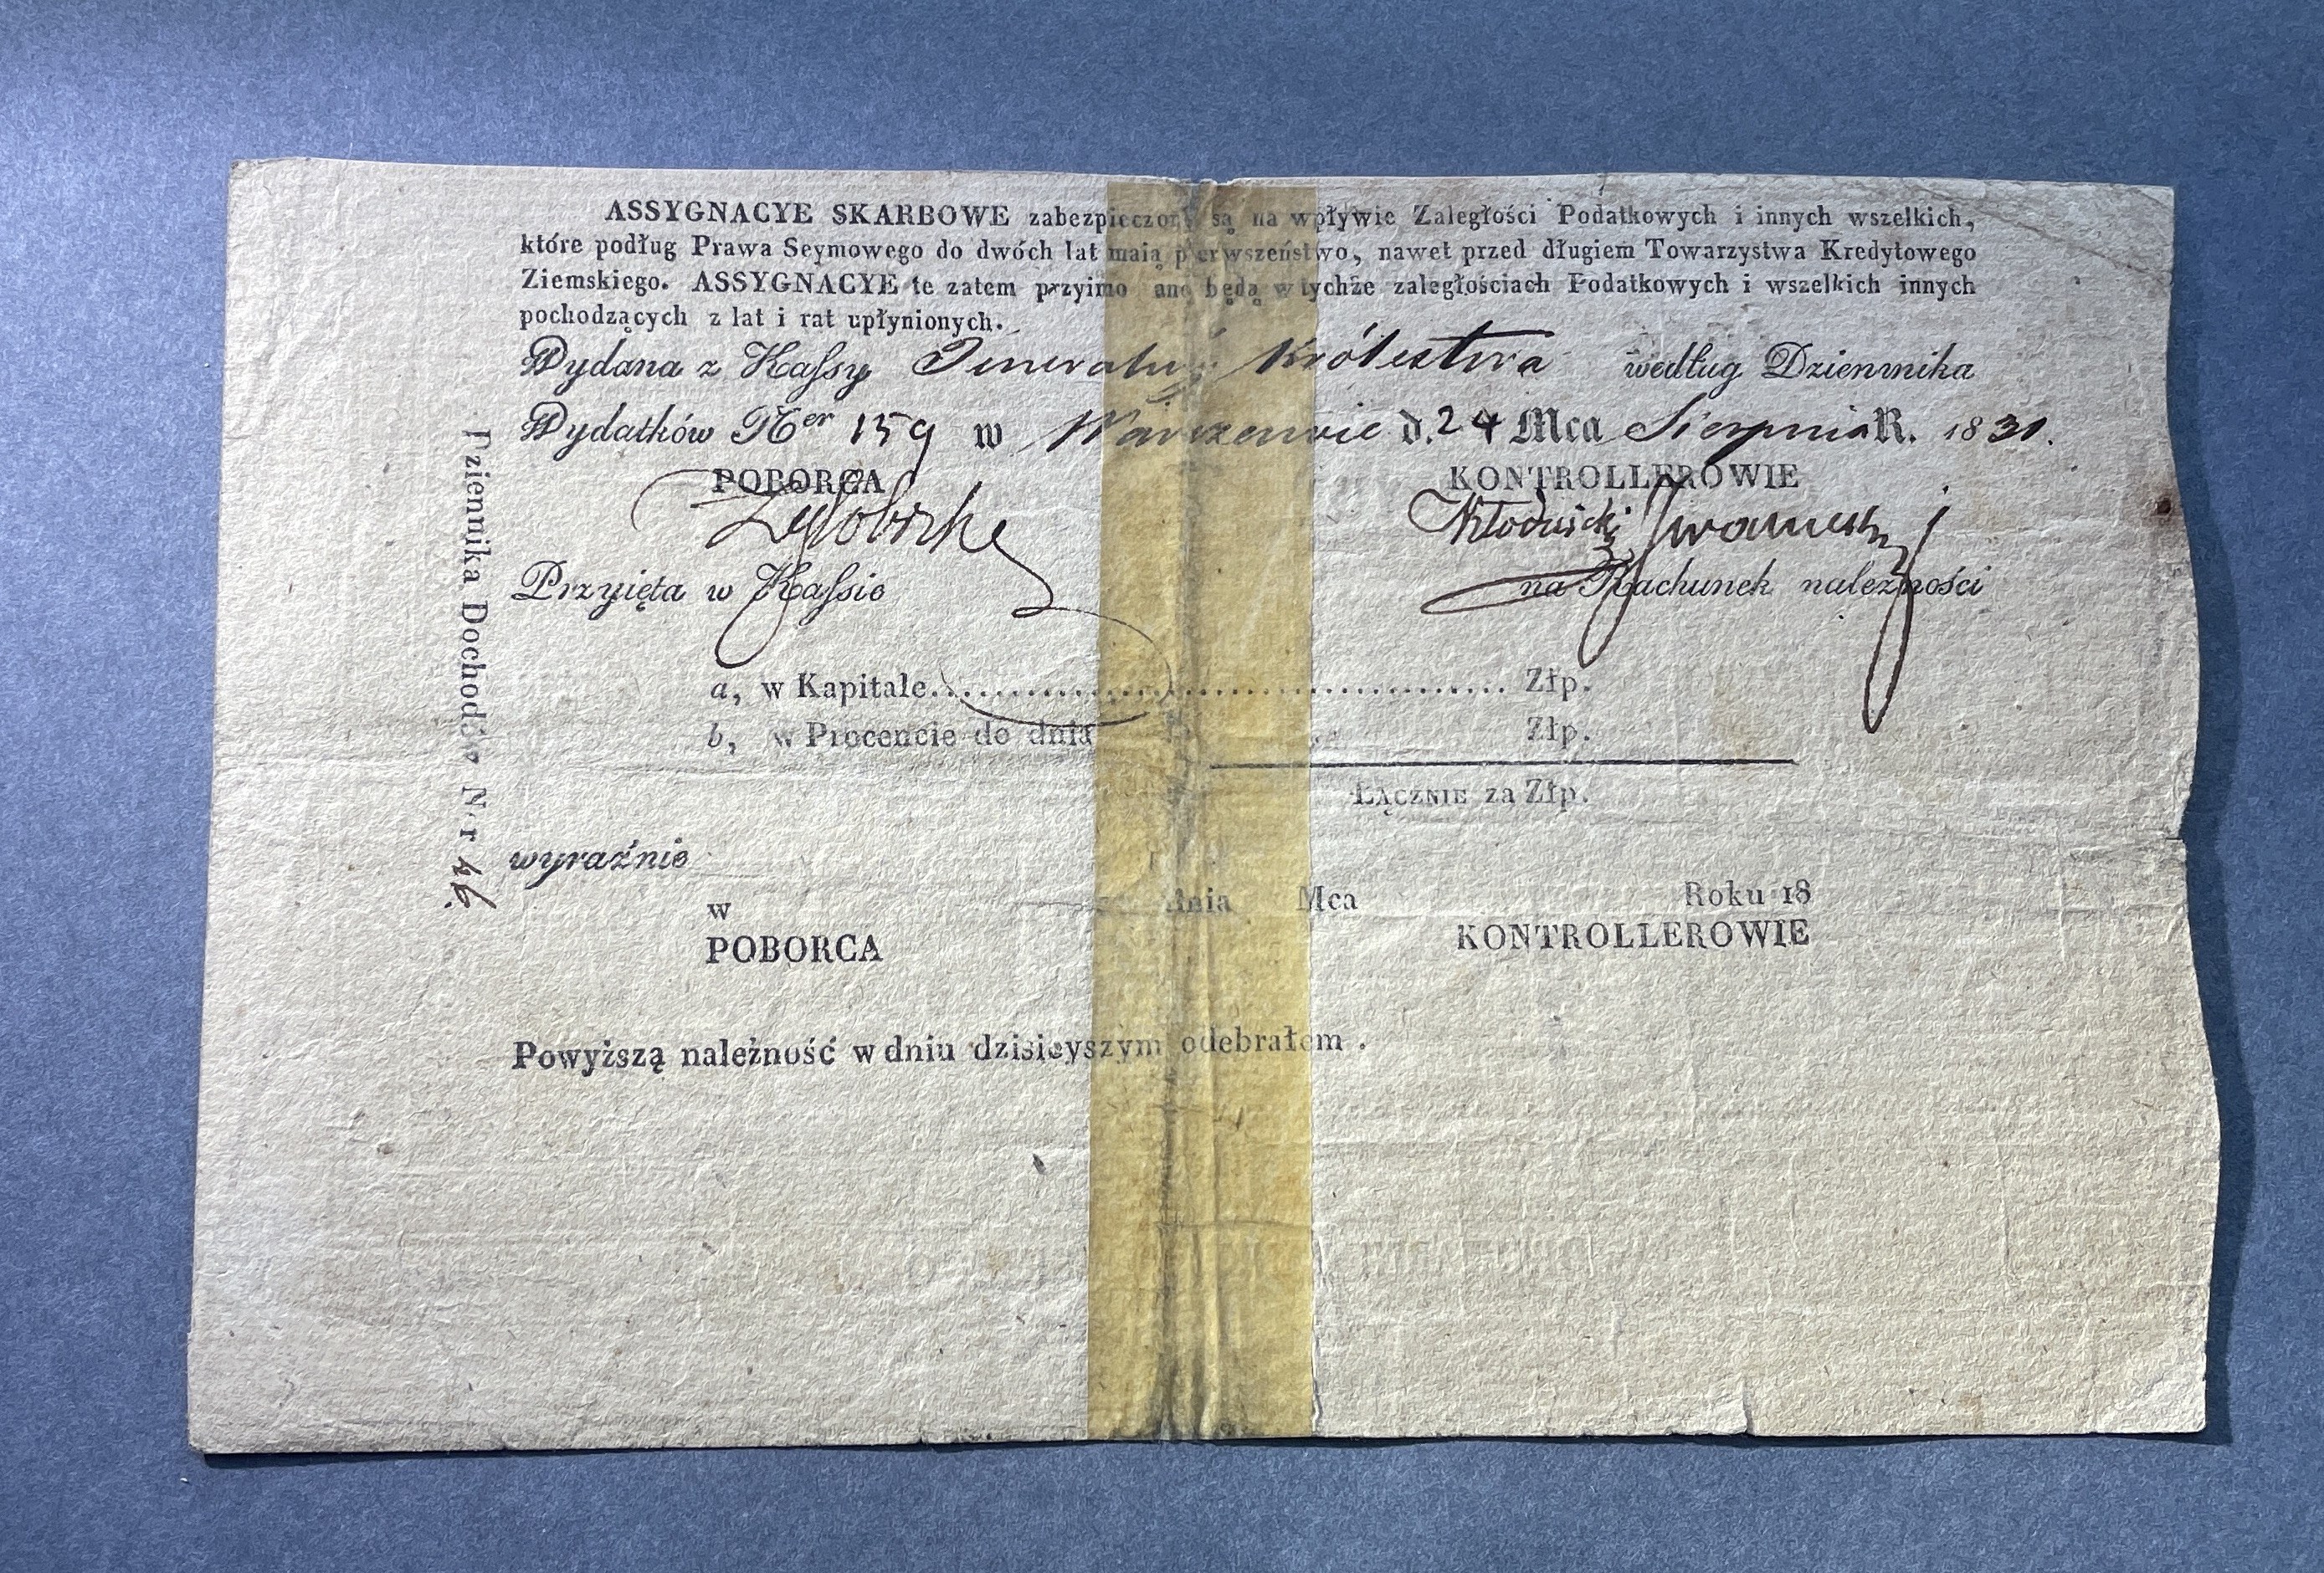 ASSYGNACYE SKARBOWE zabezpieczone są na wpływie Zaległości Podatkowych i innych wszelkich,
które podług Prawa Seymowego do dwóch lat maią pierwszeństwo, nawet przed długiem Towarzystwa Kredytowego
Ziemskiego. ASSYGNACYE te zatem przyimowane będą w tychże zaległościach Podatkowych i wszelkich innych
pochodzących z lat i rat upłynionych.
Wydana z Kassy Jeneralnej Królestwa według Dziennika
Wydatków Ner 159 w Warszawie d. 24 Mca Sierpnia R. 1831.
POBORCA KONTROLLEROWIE
Kłodnicki
Przyięta w Kassie na Rachunek należności
a, w Kapitale Złp.
b, w Procencie do dnia Złp.
ŁĄCZNIE za Złp.
wyraźnie
w dnia Mca Roku 18
POBORCA KONTROLLEROWIE
Powyższą należność w dniu dzisieyszym odebrałem.
Dziennika Dochodów Nr 46.